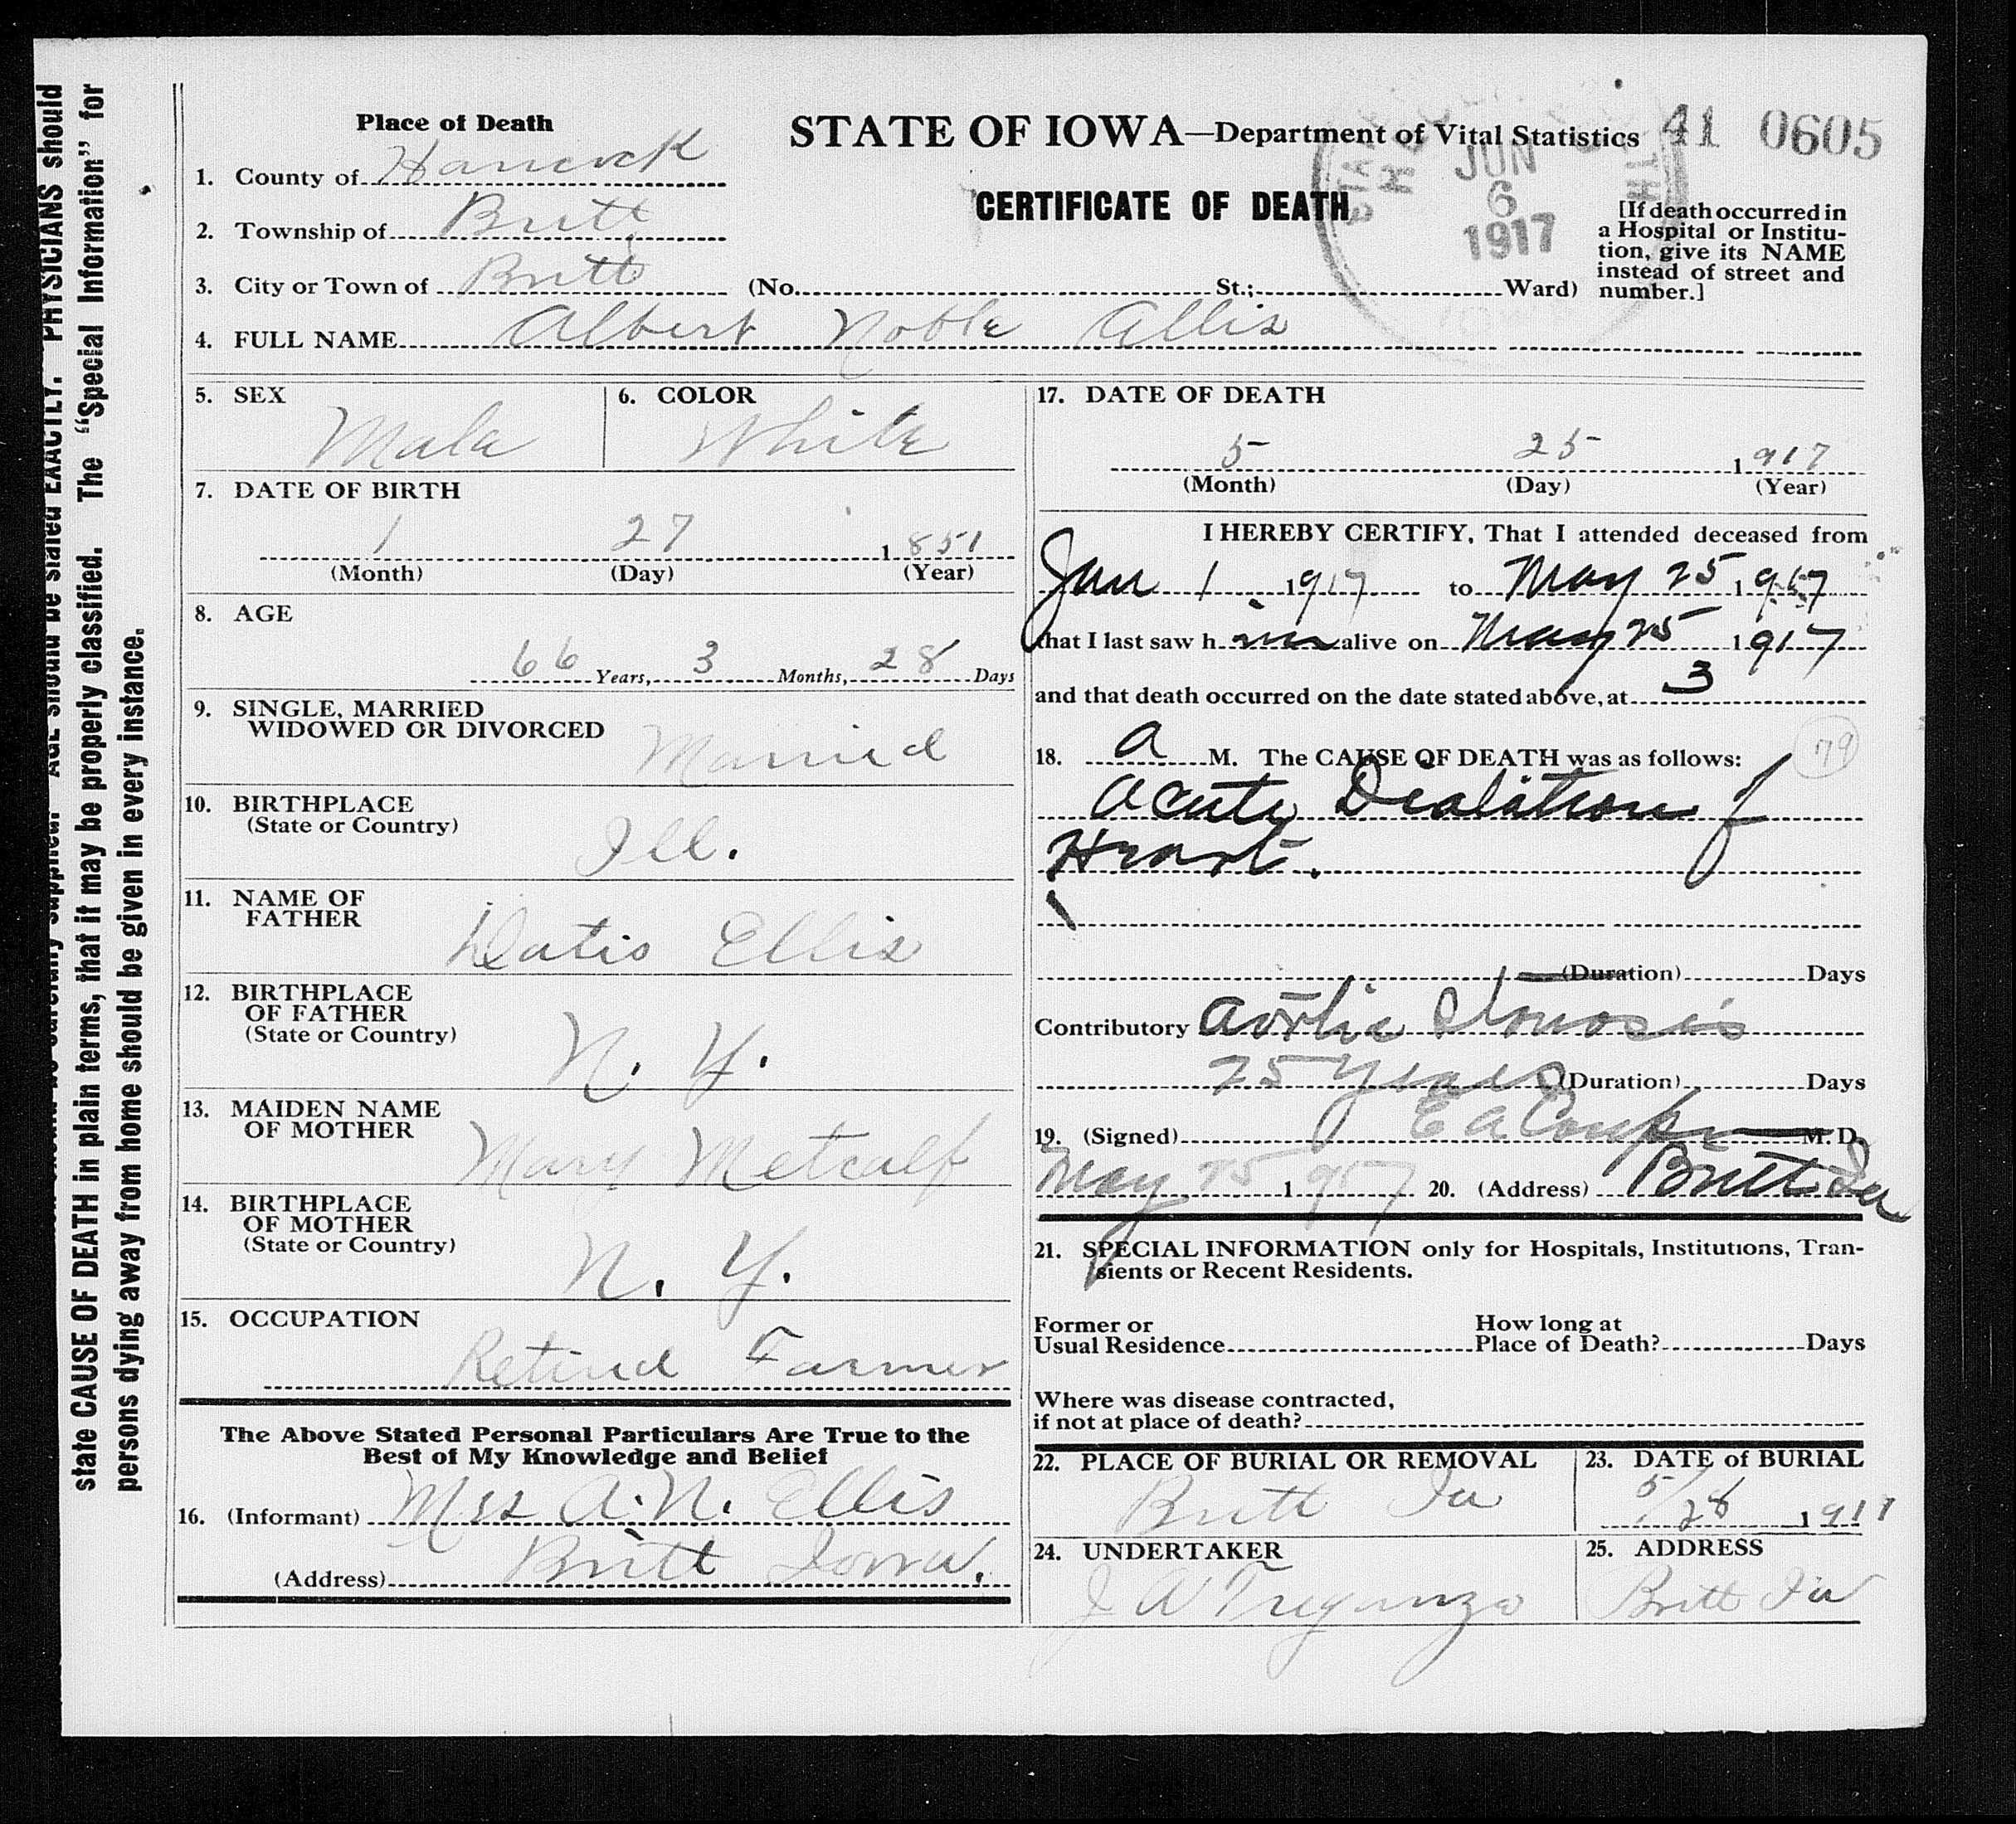 state CAUSE OF DEATH in plain terms, that it may be properly classified. The "Special Information" for
persons dying away from home should be given in every instance.
AGE should be stated EXACTLY. PHYSICIANS should
STATE OF IOWA—Department of Vital Statistics 41 0605
CERTIFICATE OF DEATH
JUN
6
1917
[If death occurred in
a Hospital or Institu-
tion, give its NAME
instead of street and
number.]
Place of Death
1. County of Hancock
2. Township of Britt
3. City or Town of Britt (No. St.; Ward)
4. FULL NAME Albert Noble Ellis
5. SEX Male 6. COLOR White
7. DATE OF BIRTH
1 27 1851
(Month) (Day) (Year)
8. AGE
66 Years, 3 Months, 28 Days
9. SINGLE, MARRIED
WIDOWED OR DIVORCED Married
10. BIRTHPLACE
(State or Country) Ill.
11. NAME OF
FATHER Datis Ellis
12. BIRTHPLACE
OF FATHER
(State or Country) N. Y.
13. MAIDEN NAME
OF MOTHER Mary Metcalf
14. BIRTHPLACE
OF MOTHER
(State or Country) N. Y.
15. OCCUPATION
Retired Farmer
The Above Stated Personal Particulars Are True to the
Best of My Knowledge and Belief
16. (Informant) Mrs A. N. Ellis
(Address) Britt Iowa.
17. DATE OF DEATH
5 25 1917
(Month) (Day) (Year)
I HEREBY CERTIFY, That I attended deceased from
Jan 1 1917 to May 25 1917
that I last saw h im alive on May 25 1917
and that death occurred on the date stated above, at 3
18. a M. The CAUSE OF DEATH was as follows: 79
Acute Dialation of
Heart.
(Duration) Days
Contributory Aortic Stonosis
25 Years (Duration) Days
19. (Signed) E A M. D.
May 25 1917 20. (Address) Britt Ia
21. SPECIAL INFORMATION only for Hospitals, Institutions, Tran-
sients or Recent Residents.
Former or How long at
Usual Residence Place of Death? Days
Where was disease contracted,
if not at place of death?
22. PLACE OF BURIAL OR REMOVAL 23. DATE of BURIAL
Britt Ia 5/28 1917
24. UNDERTAKER 25. ADDRESS
J A Treganza Britt Ia